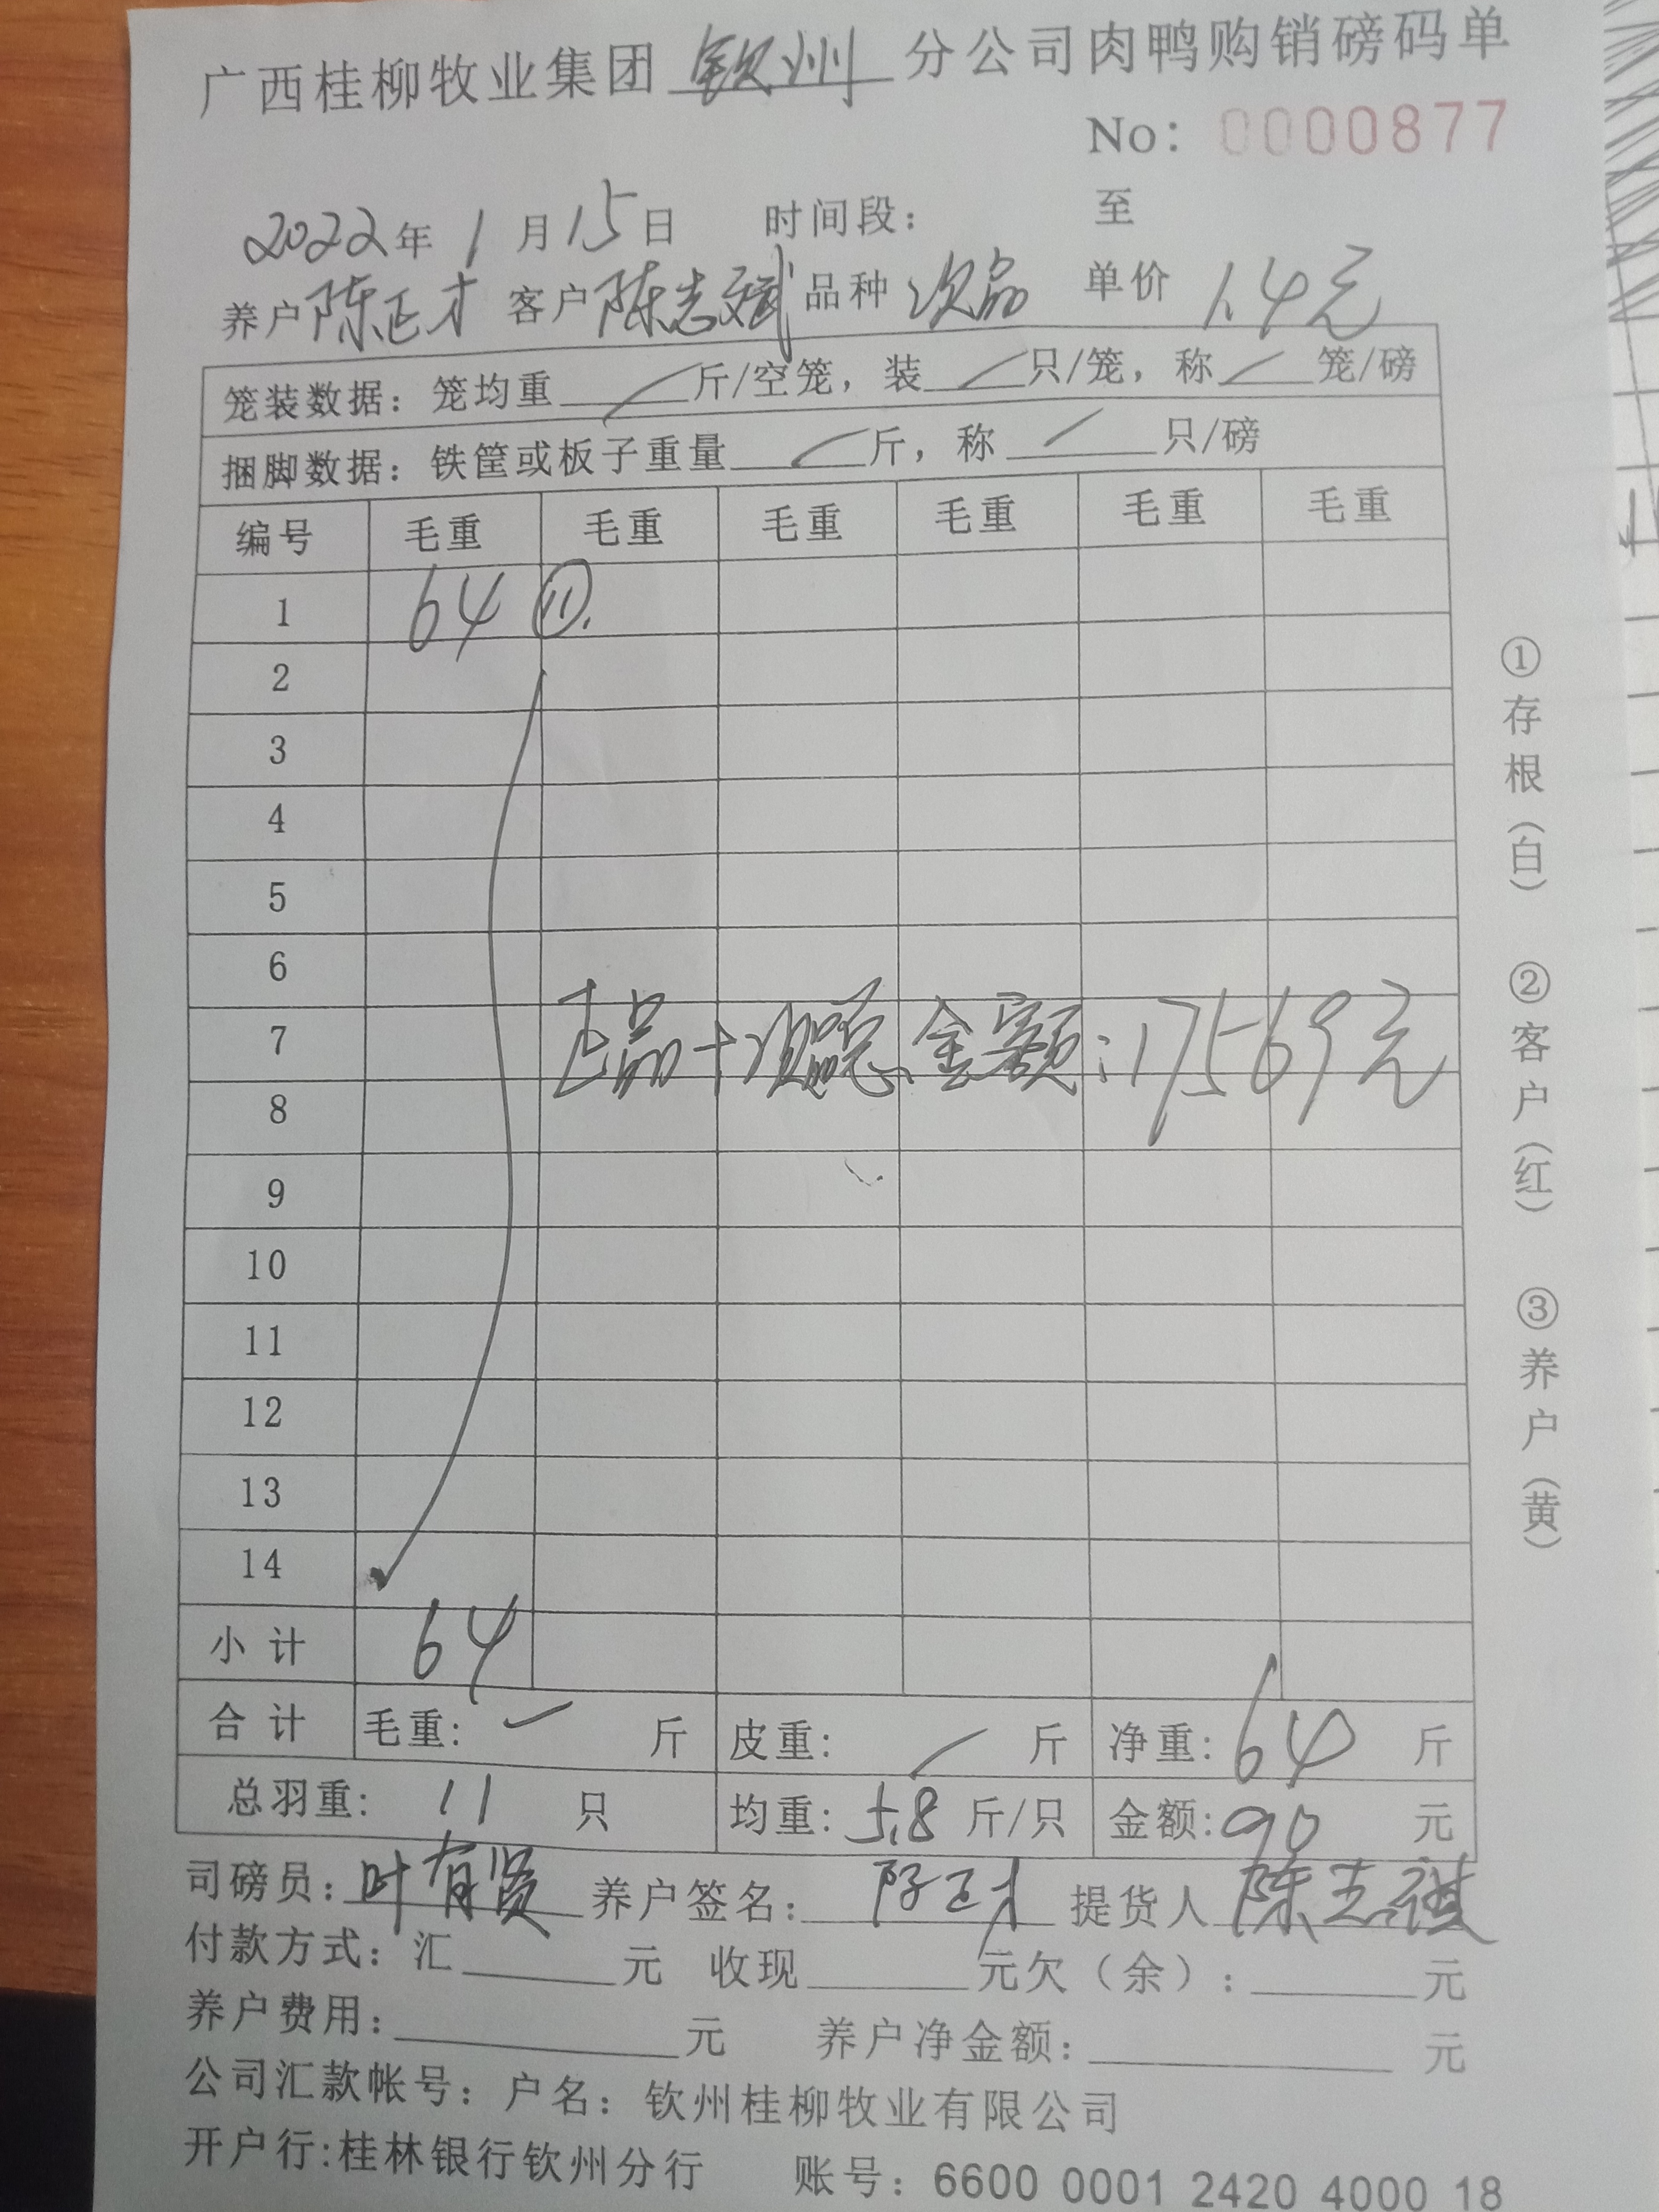 广西桂柳牧业集团 钦州 分公司肉鸭购销磅码单
No: 0000877
2022年 1 月 15日 时间段: 至
养户 陈正才 客户 陈志斌 品种 次品 单价 1.4元
笼装数据: 笼均重 斤/空笼, 装 只/笼, 称 笼/磅
捆脚数据: 铁筐或板子重量 斤, 称 只/磅
编号 毛重 毛重 毛重 毛重 毛重 毛重
1 64 ⑪.
2
3
4
5
6
7 正品+次品总金额:17569元
8
9
10
11
12
13
14
小计 64
合计 毛重: 斤 皮重: 斤 净重: 64 斤
总羽重: 11 只 均重: 5.8 斤/只 金额: 90 元
司磅员: 叶有贤 养户签名: 陈正才 提货人 陈志
付款方式: 汇 元 收现 元欠(余): 元
养户费用: 元 养户净金额: 元
公司汇款帐号: 户名: 钦州桂柳牧业有限公司
开户行:桂林银行钦州分行 账号: 6600 0001 2420 4000 18
①存根(白) ②客户(红) ③养户(黄)